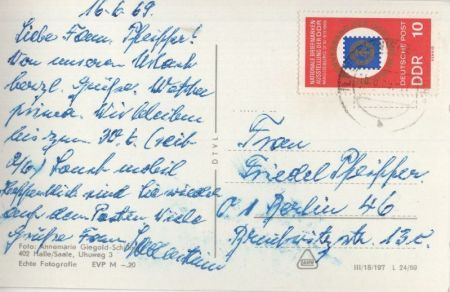 16.6.69
Liebe Fam. Pfeiffer!
Von unserem Urlaub
herzl. Grüße. Wetter
prima. Wir bleiben
bis zum 30.6. (seit
Sonst mobil
Hoffentlich sind Sie wieder
auf dem Posten. Viele
Grüße Fam.
Foto: Annemarie Giegold-Schilling
402 Halle/Saale, Uhuweg 3
Echte Fotografie EVP M -.20
DTVL
NATIONALE BRIEFMARKEN
AUSSTELLUNG DER DDR
DEUTSCHE POST
DDR 10
Frau
Friedel Pfeiffer
Berlin 46
str 13c.
III/18/197 L 24/69